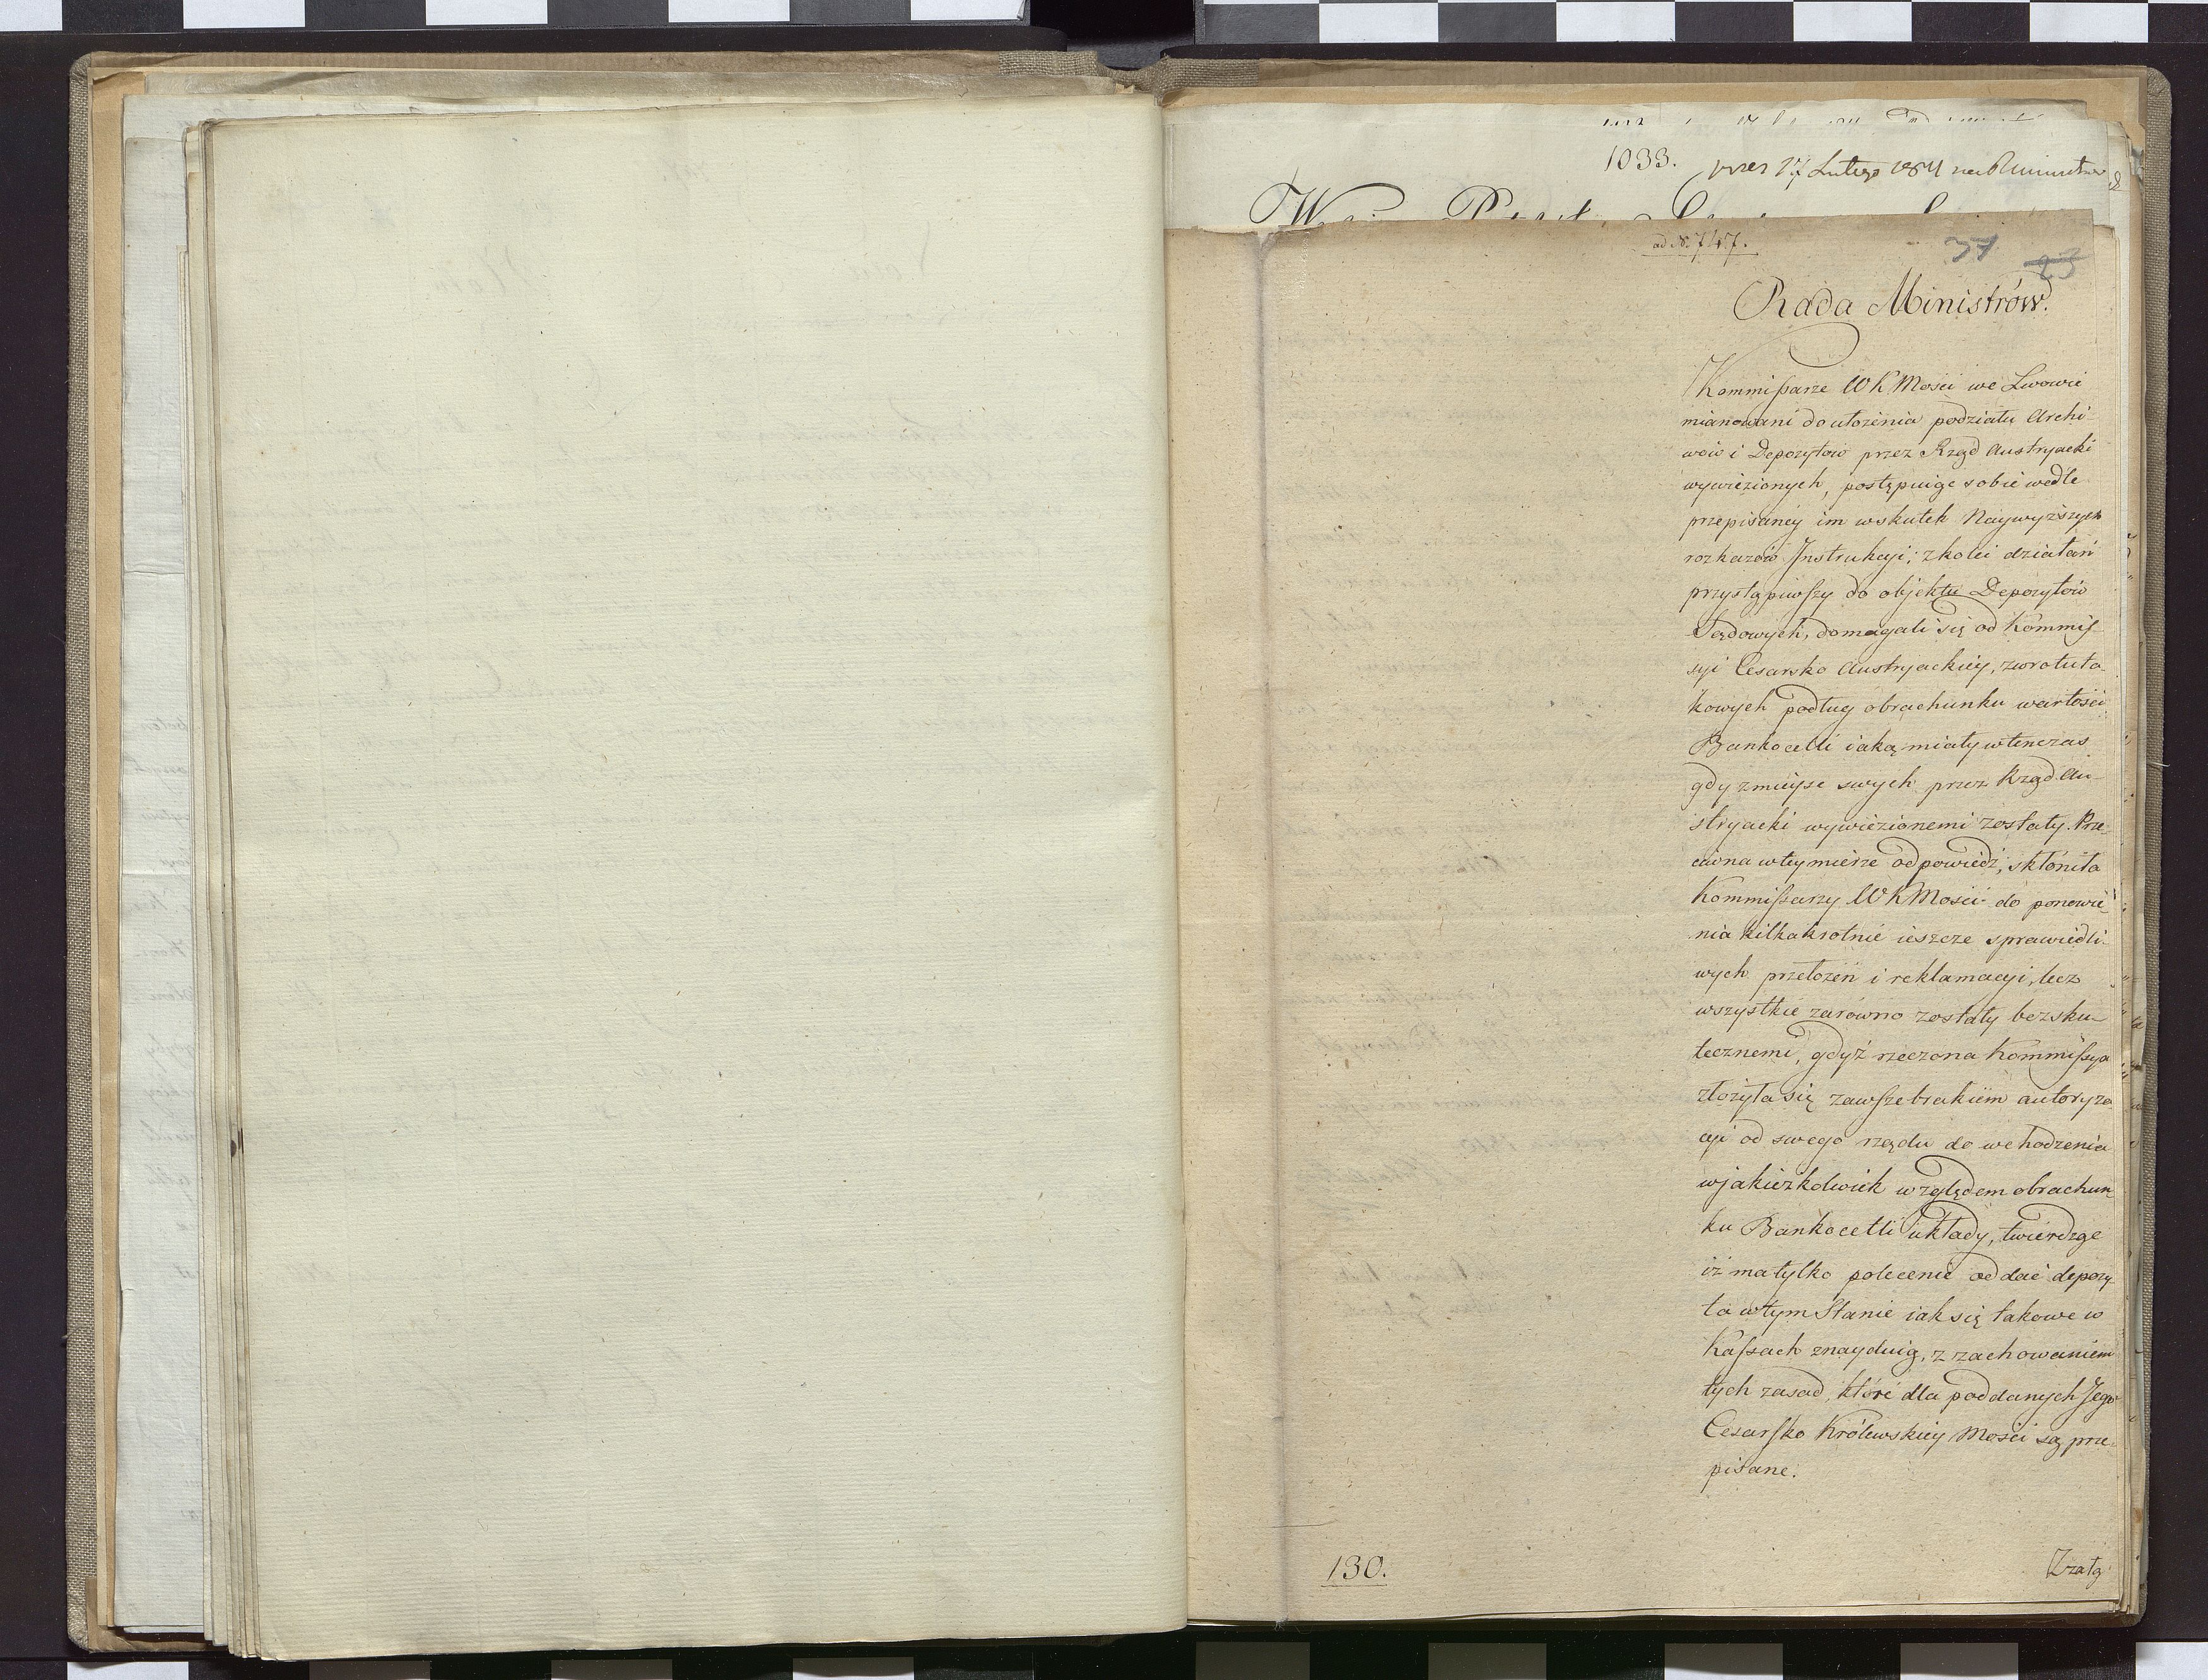 1033. przez 17 Lutego 1811
ad N. 747.
37 23
Rada Ministrów.
Kommißarze WK Mości we Lwowie
mianowani do ułożenia podziału Archi-
wów i Depozytów przez Rząd Austryacki
wywiezionych, postępuiąc sobie wedle
przepisaney im wskutek Naywyższych
rozkazów Instrukcyi; zkolei działań
przystąpiwszy do objektu Depozytów
Sądowych, domagali się od Kommis-
syi Cesarsko Austryackiey, zwrotu ta-
kowych podług obrachunku wartości
Bankocetli iaką miały wtenczas
gdy zmieysc swych przez Rząd Au-
stryacki wywiezionemi zostały. Prze-
ciwna wtey mierze odpowiedź, skłoniła
Kommißarzy WK Mości do ponowie-
nia kilkakrotnie ieszcze sprawiedli-
wych przełożeń i reklamacyi, lecz
wszystkie zarówno zostały bezsku-
tecznemi, gdyż rzeczona Kommißya
złożyła się zawsze brakiem autoryza-
cyi od swego rządu do wchodzenia
wjakieżkolwiek względem obrachun-
ku Bankocetli układy, twierdząc
iż ma tylko polecenie oddać depozy-
ta wtym Stanie iak się takowe w
Kaßach znayduią, z zachowaniem
tych zasad, które dla poddanych Jego
Cesarsko Królewskiey Mości są prze-
pisane.
130.
Zzałą